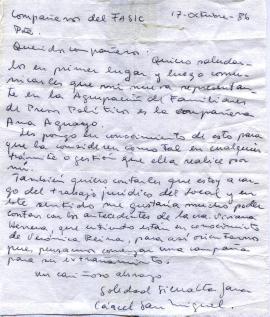 Compañeros del FASIC 17-octubre-86
Pte.
Queridos compañeros:
Quiero saludar-
los en primer lugar y luego comu-
nicarles que mi nueva representan-
te en la Agrupación de Familiares
de Presos Políticos es la compañera
Ana Aguayo.
Les pongo en conocimiento de esto para
que la consideren como tal en cualquier
trámite o gestión que ella realice por
mí.
También quiero contarles que estoy a car-
go del trabajo jurídico del local y en
este sentido me gustaría mucho poder
contar con los antecedentes de la cra. Viviana
Herrera, que entiendo están en conocimiento
de Verónica Reina, para así orientarnos
pues pensamos comenzar una campaña
para su extrañamiento.
Un cariñoso abrazo
Soledad Jara
Cárcel San Miguel.